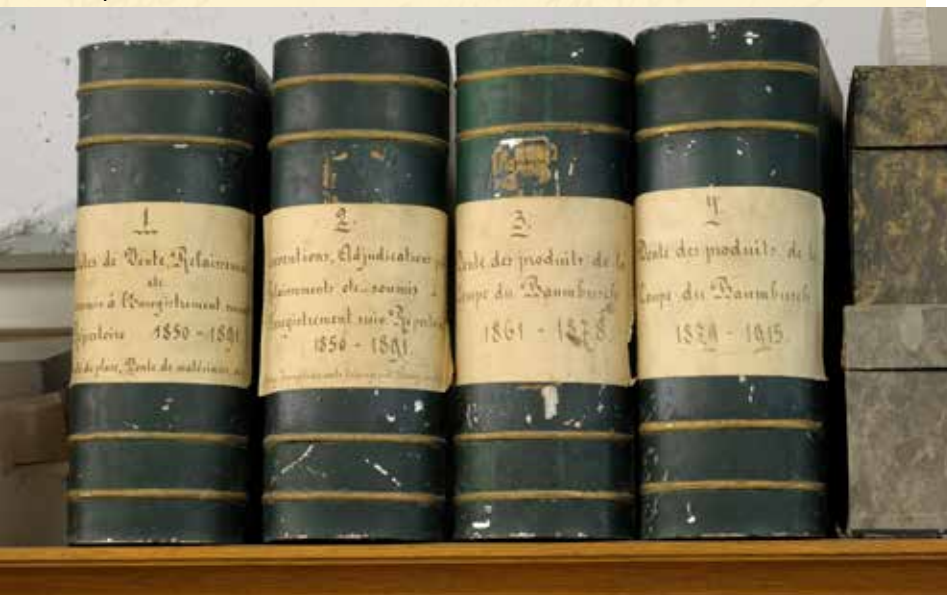 1.
de Vente, Relaissement
etc.
à l'Enregistrement
1850 - 1891
de place, Vente de matériaux,
2.
Conventions, Adjudications
Relaissements etc. soumis
Enregistrement suiv. Répertoire
1850 - 1891
3.
Vente des produits de la
Coupe du Baumbusch
1861 - 1878
4
Vente des produits de la
Coupe du Baumbusch
1879 - 1915.